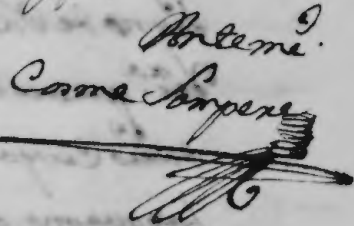 Ante mi.
Cosme Sempere